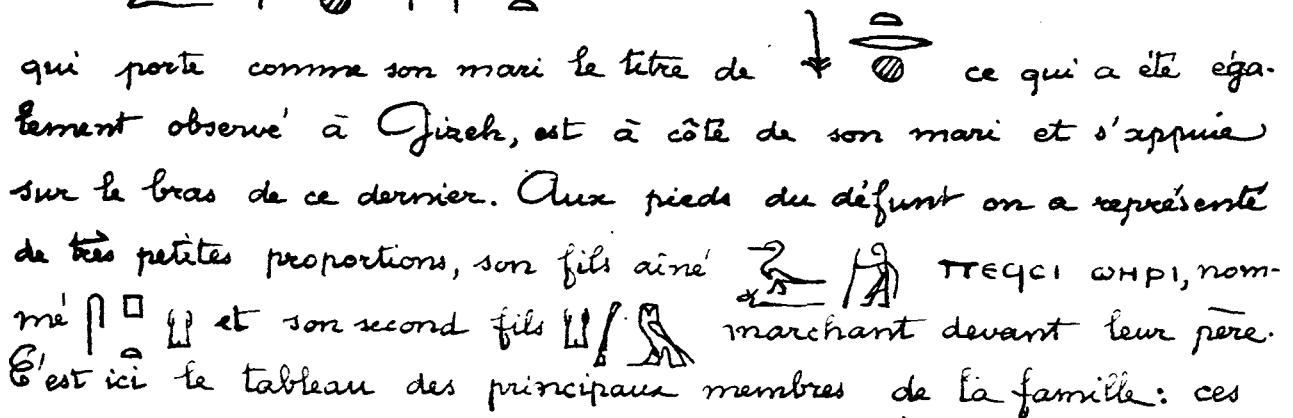 qui porte comme son mari le titre de 𓇓𓏏𓂋𓐍 ce qui a été éga-
lement observé à Gizeh, est à côté de son mari et s'appuie
sur le bras de ce dernier. Aux pieds du défunt on a représenté
de très petites proportions, son fils ainé 𓅭𓆑𓀙 ⲡⲉϥⲥⲓ ϣⲏⲣⲓ, nom-
mé et son second fils marchant devant leur père.
C'est ici le tableau des principaux membres de la famille: ces